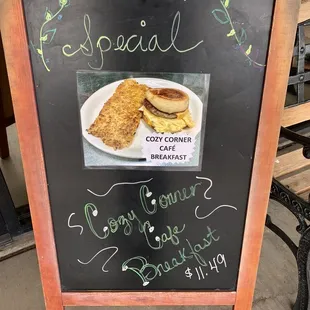 Special
COZY CORNER
CAFÉ
BREAKFAST
Cozy Corner
Cafe
Breakfast
$11.49